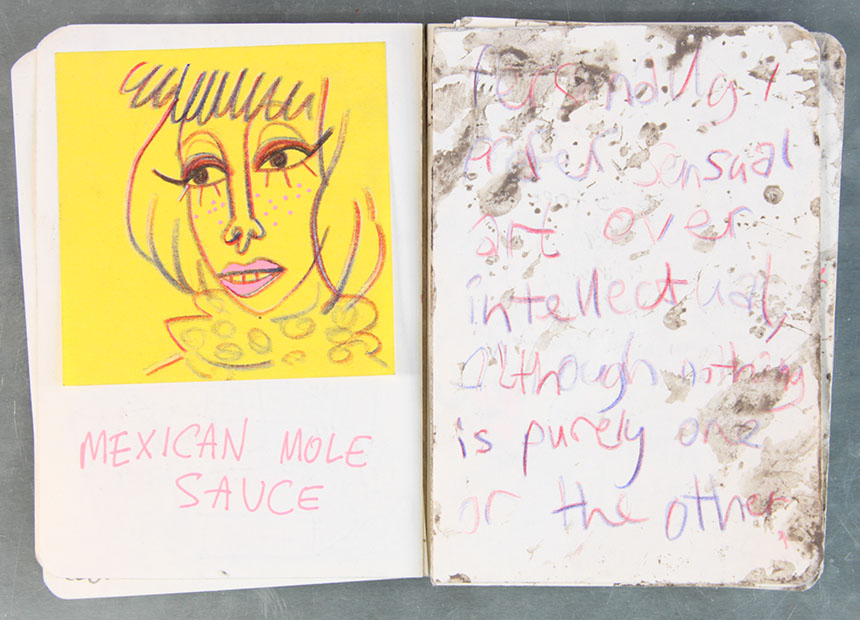 MEXICAN MOLE
SAUCE
Personally I
prefer sensual
art over
intellectual,
although nothing
is purely one
or the other